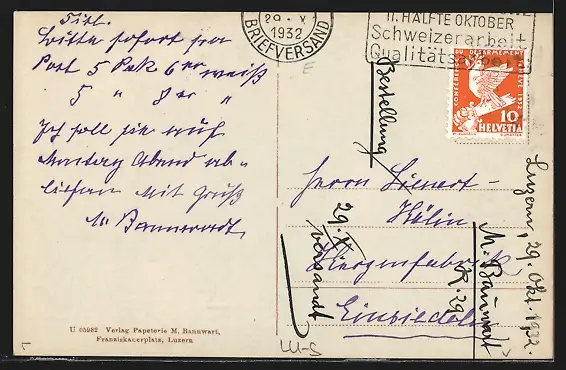 Titl.
Bitte sofort per
Post 5 Pak 6er weiß
5 " 8er "
Ich soll sie auf
Montag Abend ab-
liefern Mit Gruß
M. Bannwart
U 05982 Verlag Papeterie M. Bannwart,
Franziskanerplatz, Luzern
29. X.
1932
BRIEFVERSAND
II. HÄLFTE OKTOBER
Schweizerarbeit
Qualitätsarbeit
CONFERENCE DU DESARMEMENT
1932
10
HELVETIA
Bestellung
Herrn Lienert-
Kälin
Kerzenfabrik
Einsiedeln
29. X.
versandt
Luzern, 29. Okt. 1932.
M. Bannwart
R. 29